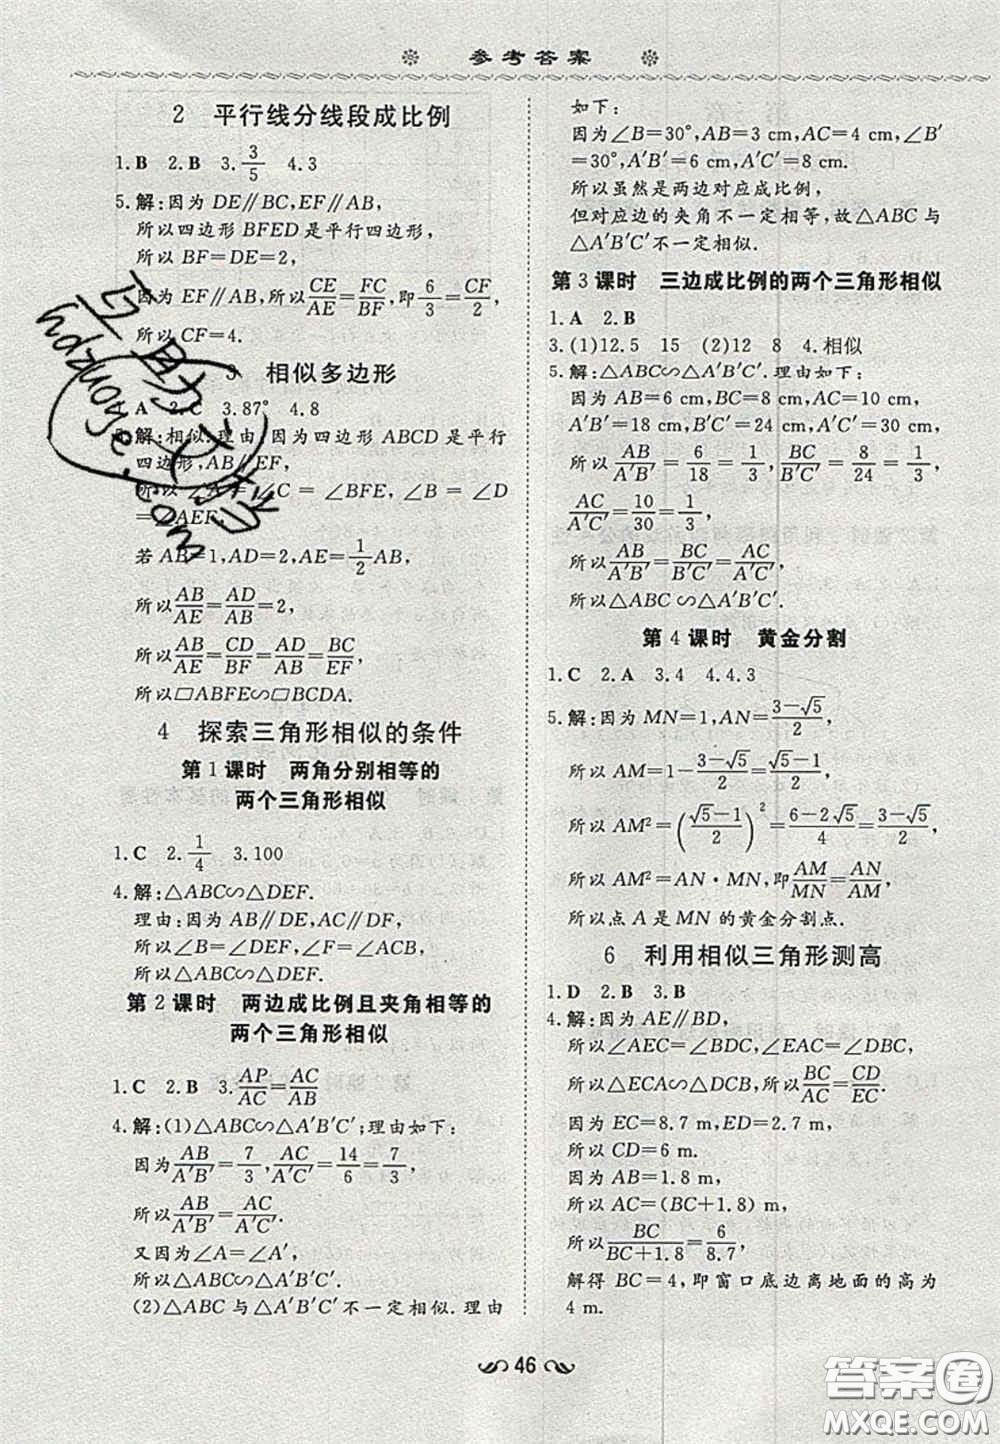 参考答案
2 平行线分线段成比例
1.B 2.B 3.3/5 4.3
5.解:因为DE∥BC,EF∥AB,
所以四边形BFED是平行四边形,
所以BF=DE=2,
因为EF∥AB,所以CE/AE=FC/BF,即6/3=CF/2,
所以CF=4.
3 相似多边形
A 2.C 3.87° 4.8
5.解:相似.理由:因为四边形ABCD是平行
四边形,AB∥EF,
所以∠A=∠C=∠BFE,∠B=∠D
=∠AEF.
若AB=1,AD=2,AE=1/2AB,
所以AB/AE=AD/AB=2,
所以AB/AE=CD/BF=AD/AB=BC/EF,
所以▱ABFE∽▱BCDA.
4 探索三角形相似的条件
第1课时 两角分别相等的
两个三角形相似
1.C 2.1/4 3.100
4.解:△ABC∽△DEF.
理由:因为AB∥DE,AC∥DF,
所以∠B=∠DEF,∠F=∠ACB,
所以△ABC∽△DEF.
第2课时 两边成比例且夹角相等的
两个三角形相似
1.C 2.B 3.AP/AC=AC/AB
4.解:(1)△ABC∽△A′B′C′;理由如下:
因为AB/A′B′=7/3,AC/A′C′=14/6=7/3,
所以AB/A′B′=AC/A′C′.
又因为∠A=∠A′,
所以△ABC∽△A′B′C′.
(2)△ABC与△A′B′C′不一定相似.理由
如下:
因为∠B=30°,AB=3 cm,AC=4 cm,∠B′
=30°,A′B′=6 cm,A′C′=8 cm.
所以虽然是两边对应成比例,
但对应边的夹角不一定相等,故△ABC与
△A′B′C′不一定相似.
第3课时 三边成比例的两个三角形相似
1.A 2.B
3.(1)12.5 15 (2)12 8 4.相似
5.解:△ABC∽△A′B′C′.理由如下:
因为AB=6 cm,BC=8 cm,AC=10 cm,
A′B′=18 cm,B′C′=24 cm,A′C′=30 cm,
所以AB/A′B′=6/18=1/3,BC/B′C′=8/24=1/3,
AC/A′C′=10/30=1/3,
所以AB/A′B′=BC/B′C′=AC/A′C′,
所以△ABC∽△A′B′C′.
第4课时 黄金分割
1.C 2.A 3.4 4.4.3
5.解:因为MN=1,AN=(3-√5)/2,
所以AM=1-(3-√5)/2=(√5-1)/2,
所以AM²=((√5-1)/2)²=(6-2√5)/4=(3-√5)/2,
所以AM²=AN·MN,即AM/MN=AN/AM,
所以点A是MN的黄金分割点.
6 利用相似三角形测高
1.D 2.B 3.B
4.解:因为AE∥BD,
所以∠AEC=∠BDC,∠EAC=∠DBC,
所以△ECA∽△DCB,所以BC/AC=CD/EC.
因为EC=8.7 m,ED=2.7 m,
所以CD=6 m.
因为AB=1.8 m,
所以AC=(BC+1.8) m,
所以BC/(BC+1.8)=6/8.7,
解得BC=4,即窗口底边离地面的高为
4 m.
46
hdzuoye.com
答案圈
MXQE.COM